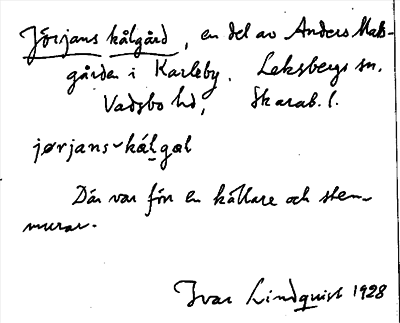 Jörjans kålgård, en del av Anders Mats-
gården i Karleby. Leksbergs sn.
Vadsbo hd, Skarab. l.
jørjans-kálgal
Där var förr en källare och sten-
murar.
Ivar Lindquist 1928